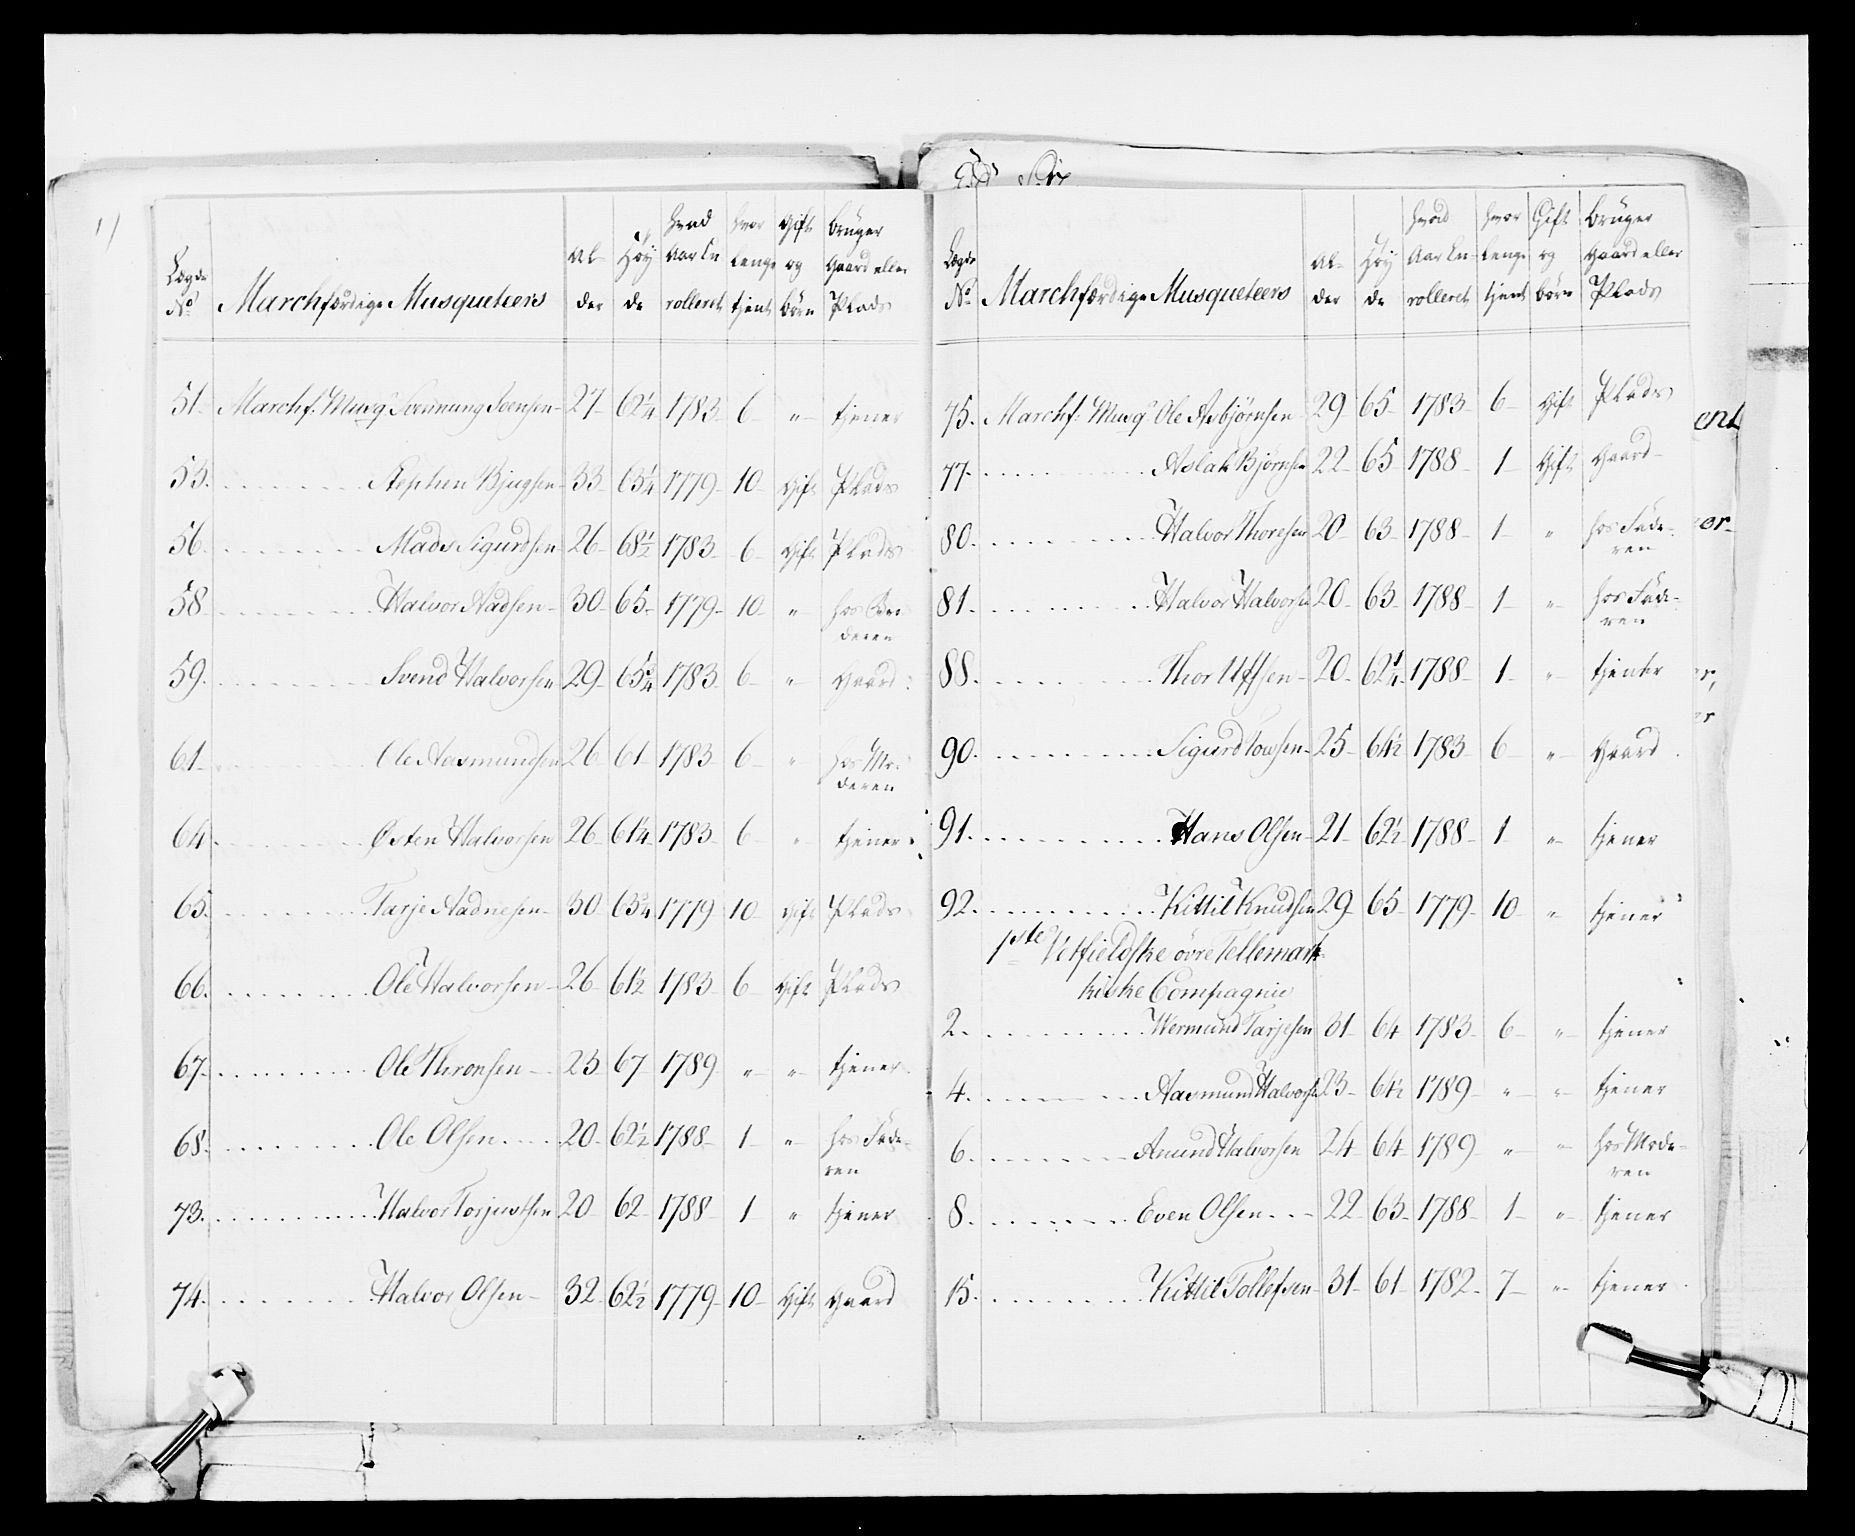 Lægds No | Marchfærdige Musqueteers | Al- der | Höy de | hvad Aar En rolleret | hvor Lenge tjent | Gift og börn | Brüger Gaard eller Plads
51 Marchf: Musqr Svennung Svensen 27 62¼ 1783 6 " tjener
53. Stephen Bjugsen 33 65¼ 1779 10 Gift Plads
56. Mads Sigurdsen 26 68½ 1783 6 Gift Plads
58 Halvor Aadsen 30 65 1779 10 " hos
deren
59. Svend Halvorsen 29 65¾ 1783 6 " Gaard
61 Ole Aasmundsen 26 61 1783 6 " hos Mo-
deren
64. Østen Halvorsen 26 61¼ 1783 6 " tjener
65. Tarje Aadnesen 30 63¾ 1779 10 Gift Plads
66. Ole Halvorsen 26 61½ 1783 6 Gift Plads
67. Ole Thronsen 23 67 1789 " " tjener
68. Ole Olsen 20 62½ 1788 1 " hos Fade-
ren
73. Halvor Torjustsen 20 62 1788 1 " tjener
74. Halvor Olsen 32 62½ 1779 10 Gift Gaard
Lægds No | Marchfærdige Musqueteers | Al- der | Höy de | hvad Aar En- rolleret | hvor Lenge tjent | Gift og börn | Brüger Gaard eller Plads
75. Marchf: Musqr Ole Asbjørnsen 29 65 1783 6 Gift Plads
77. Aslak Bjørnsen 22 65 1788 1 Gift Gaard
80. Halvor Thoresen 20 63 1788 1 " hos Fade-
ren
81. Halvor Halvorsen 20 63 1788 1 " hos Fade-
ren
88. Thor Ulfsen 20 62¼ 1788 1 " tjenter
90. Sigurd Tovsen 25 64½ 1783 6 " Gaard
91. Hans Olsen 21 62½ 1788 1 " tjener
92. Kittil Knudsen 29 65 1779 10 " tjener
1ste Vetfieldske övre Tellemar-
kiske Compagnie
2. Wermund Tarjesen 31 64 1783 6 " tjener
4. Aasmund Halvorsen 23 64½ 1789 " " tjener
6. Anund Halvorsen 24 64 1789 " " hos Mode-
ren
8. Even Olsen 22 63 1788 1 " tjener
15. Kittil Tollefsen 31 61 1782 7 " tjener